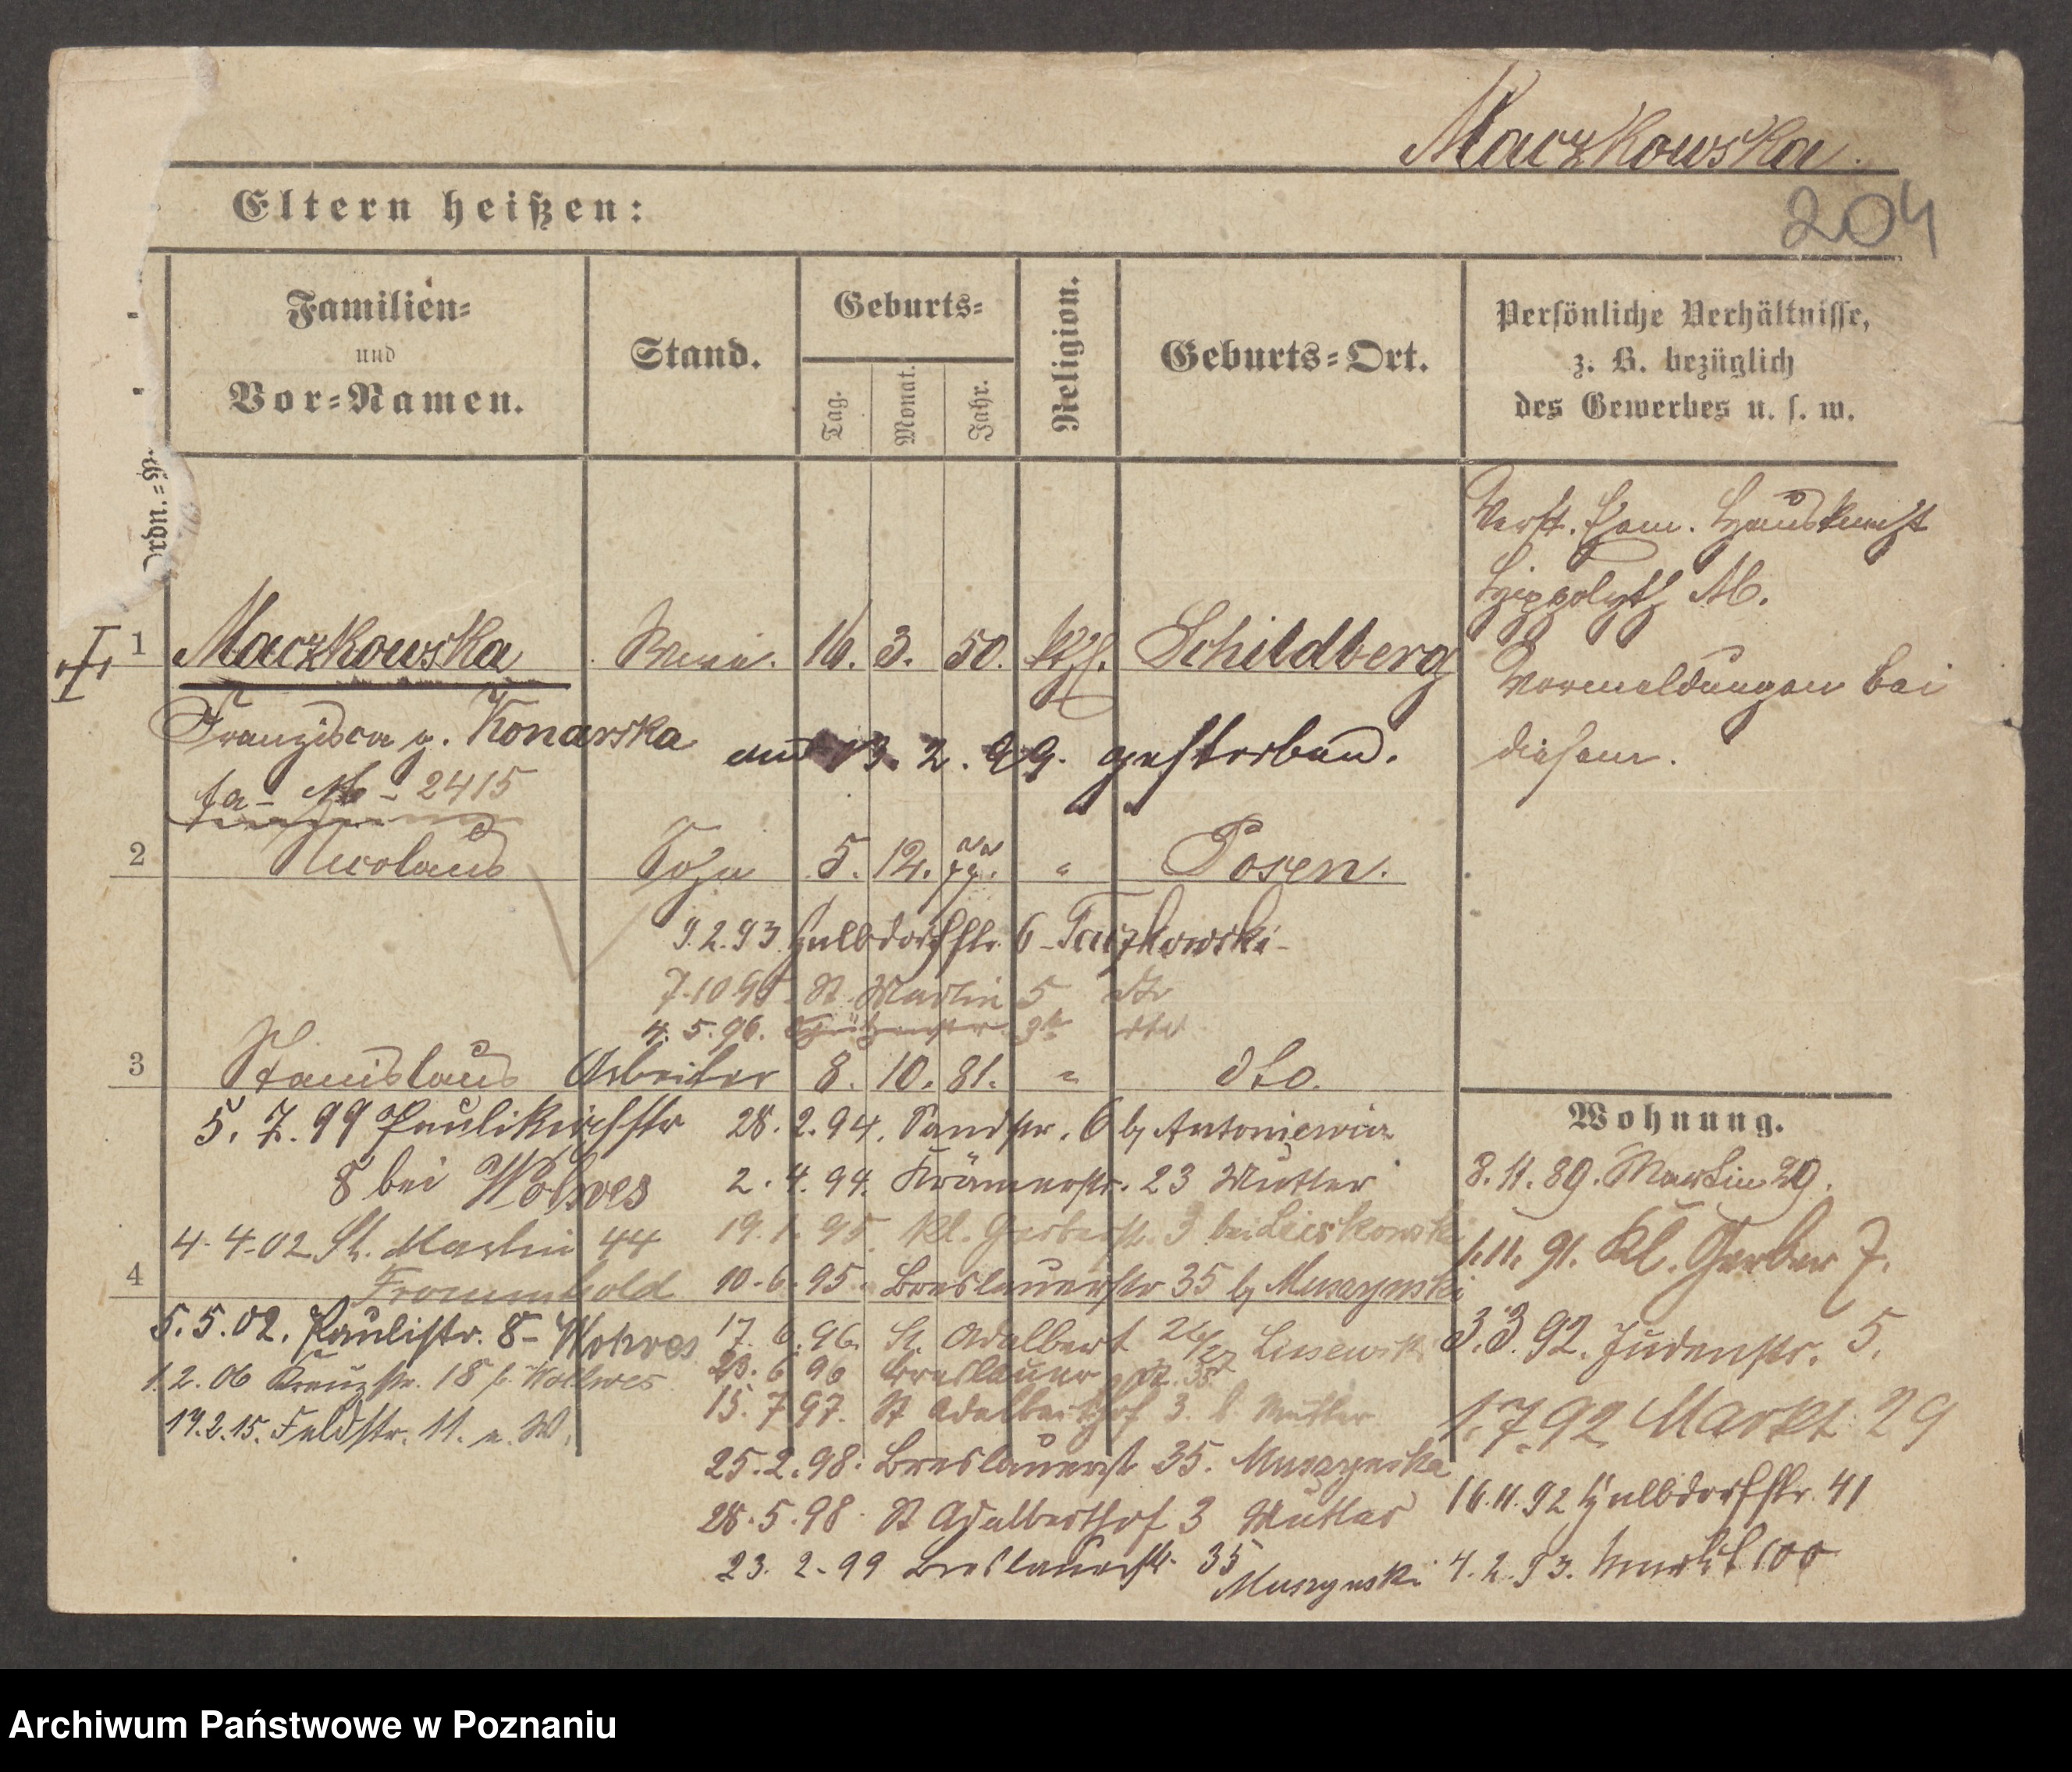 Maczkowska.
204
Eltern heißen:
Ordn.=
Familien=
und
Vor=Namen.
Stand.
Geburts=
Tag.
Monat.
Jahr.
Religion.
Geburts=Ort.
Persönliche Verhältnisse,
z. B. bezüglich
des Gewerbes u. s. w.
Hausknecht
Hippolyth M.
Vormeldungen bei
diesem.
1 Maczkowska 16. 3. 50. kth. Schildberg
Franzisca g. Konarska
am 13. 2. 99. gestorben.
M - 2415
2 Nicolaus 5. 12. " Posen.
9.2.93 Halbdorfstr. 6 - Taczkowski -
7.10 95. St. Martin 5 dto
4. 5. 96. dto
3 Stanislaus Arbeiter 8. 10. 81. " dto.
5. 7. 99 Paulikirchstr
8 bei Wolwes
4. 4. 02 St. Martin 44
4 Frommhold
5. 5. 02. Paulistr. 8 -
1.2. 06 Kreuzstr. 18
19.2.15. Feldstr. 11.
28. 2. 94. Sandstr. 6 b Antoniewicz
2. 4. 94. Krämerstr. 23 Mutter
19. 1. 95. Kl. Gerberstr. 3 bei Lieskowski
10. 6. 95. Breslauerstr 35 b Muszynski
17. 6. 96. St. Adalbert 26/27
23. 6 96 Breslauer str. 35
15. 7 97. St Adalberthof 3. b Mutter
25. 2. 98. Breslauerstr 35. Muszynska
28. 5. 98. St Adalberthof 3 Mutter
23. 2. 99 Breslauerstr. 35
Muszynski
Wohnung.
8. 11. 89. Martin 29.
1. 11. 91. Kl. Gerber 7.
3. 3. 92. Judenstr. 5.
1. 7. 92 Markt 29
16. 11. 92 Halbdorfstr. 41
4. 2. 93. Markt 100